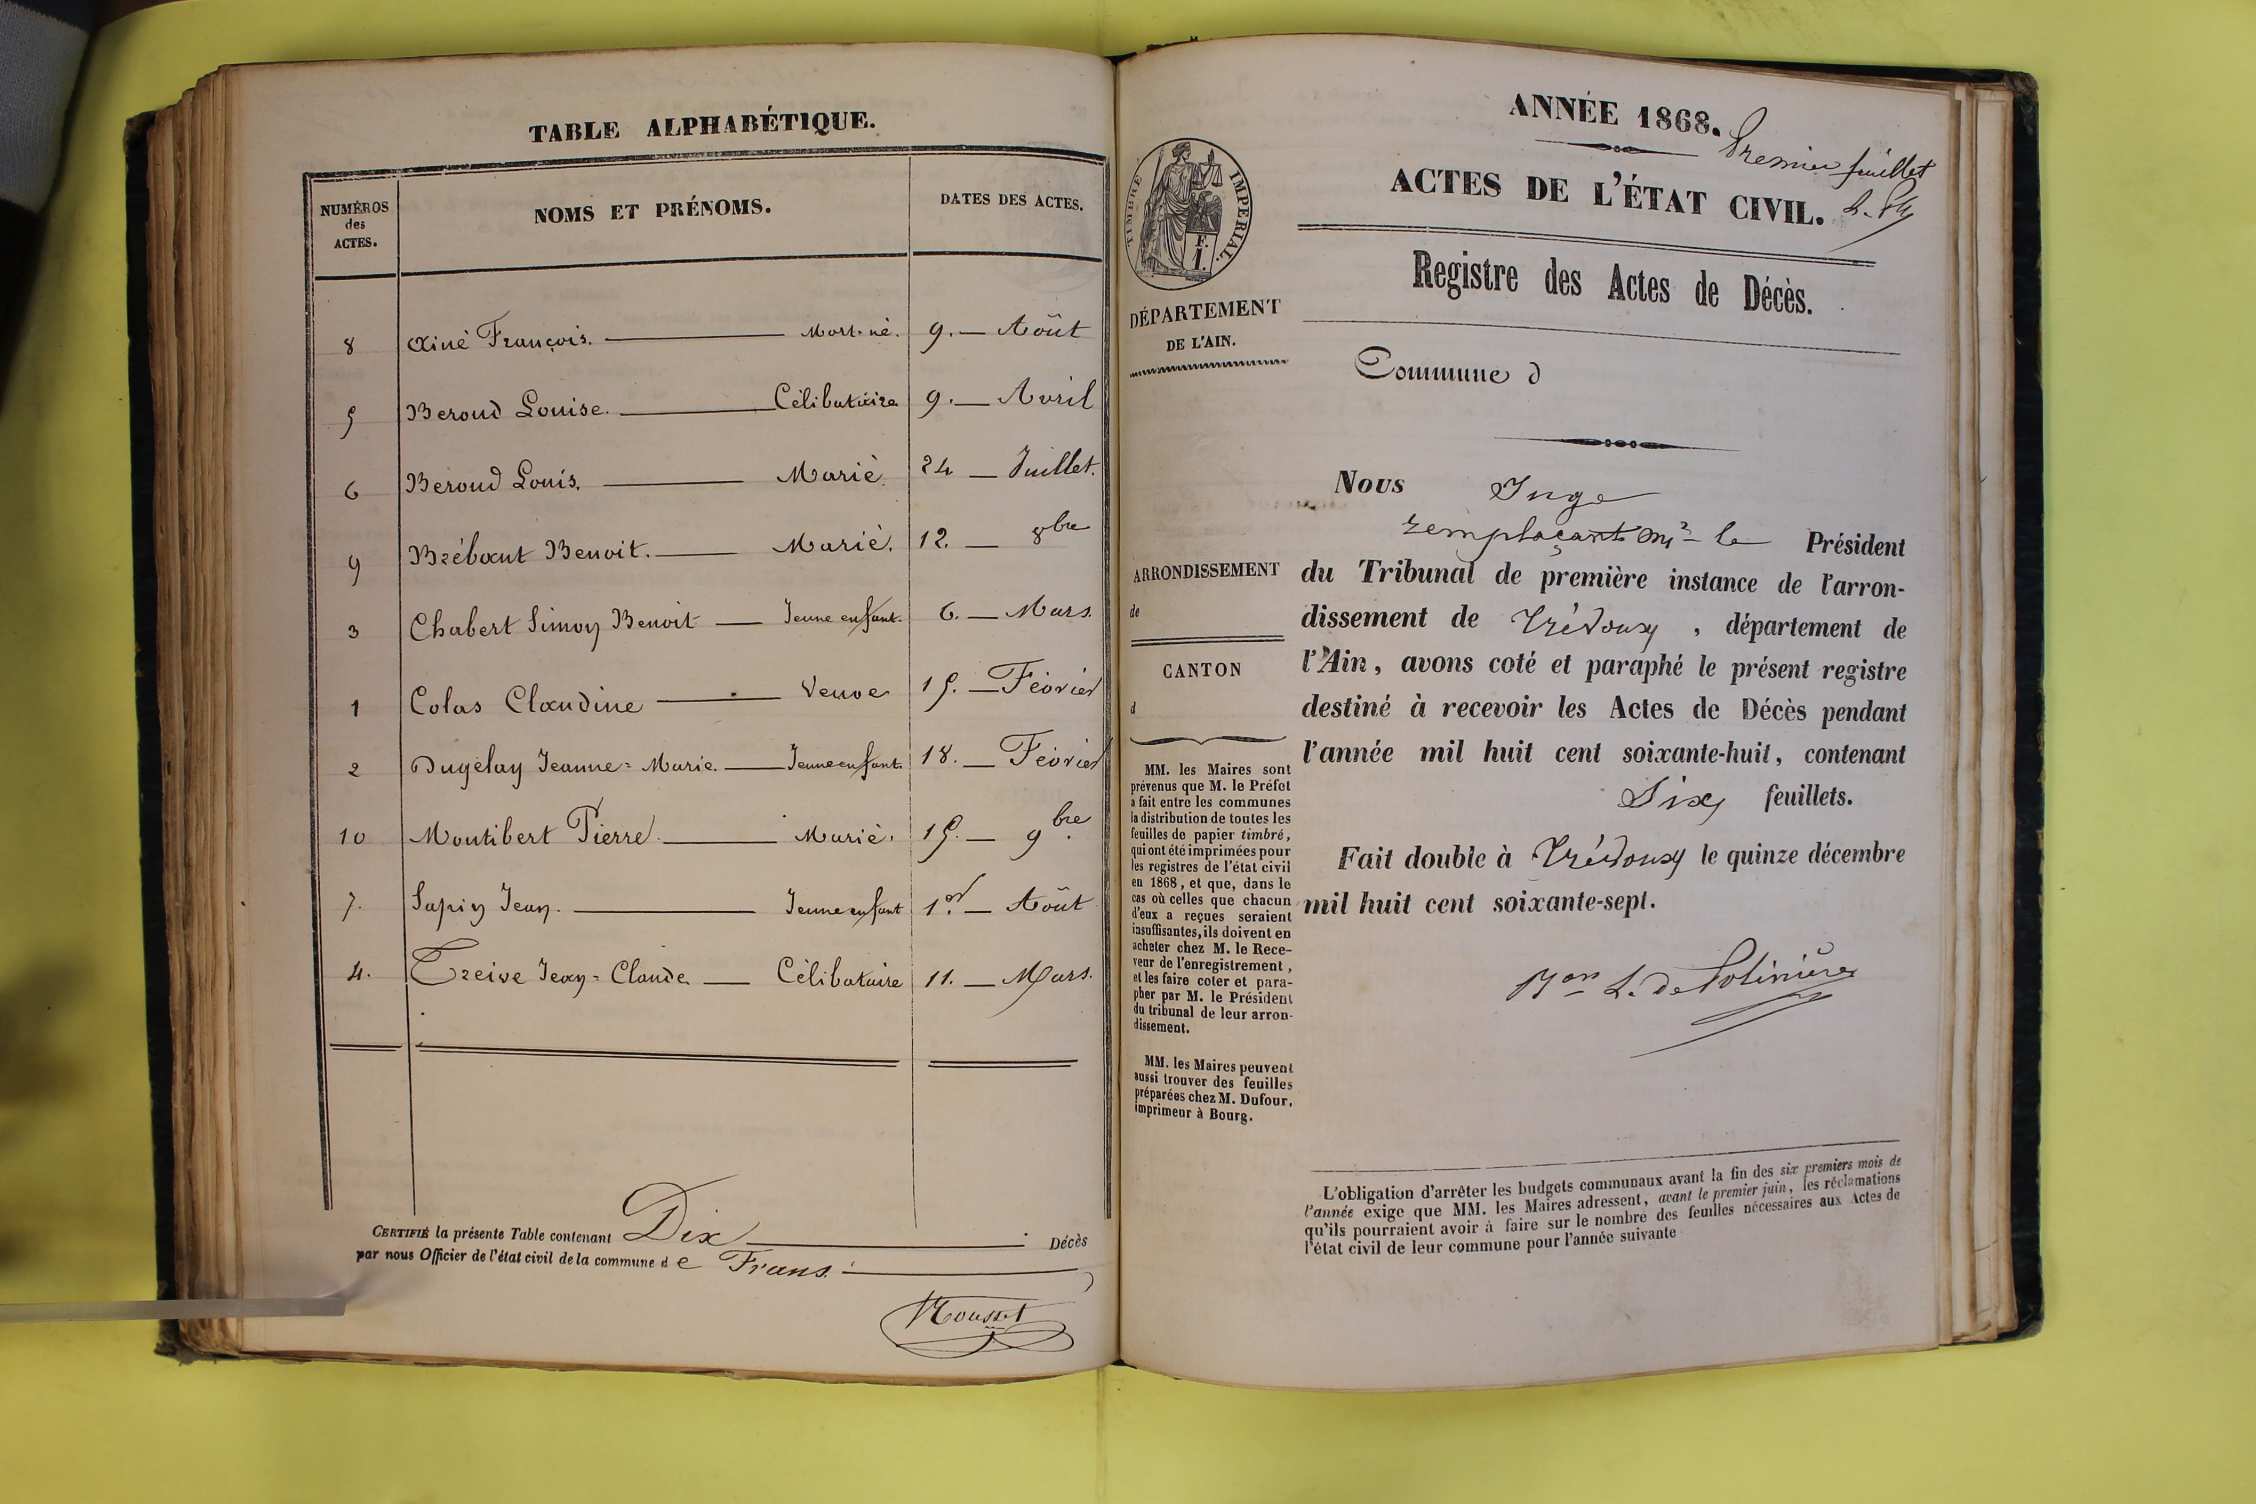 TABLE ALPHABÉTIQUE.
NUMÉROS des ACTES. NOMS ET PRÉNOMS. DATES DES ACTES.
8 Ainé François. Mort-né. 9. Août
5 Beroud Louise. Célibataire 9. Avril
6 Beroud Louis. Marié. 24 Juillet.
9 Brébant Benoit. Marié. 12. 8bre
3 Chabert Simon Benoit Jeune enfant. 6. Mars.
1 Colas Claudine Veuve 15. Février
2 Dugelay Jeanne=Marie. Jeune enfant. 18. Février
10 Montibert Pierre. Marié. 15. 9bre.
7. Sapin Jean. Jeune enfant 1er. Août
4. Treive Jean=Claude Célibataire 11. Mars.
CERTIFIÉ la présente Table contenant Dix Décès
par nous Officier de l'état civil de la commune de Frans.
Mousset
ANNÉE 1868.
Premier feuillet
ACTES DE L'ÉTAT CIVIL.
Registre des Actes de Décès.
TIMBRE IMPERIAL.
F.
1.
DÉPARTEMENT
DE L'AIN.
Commune d
ARRONDISSEMENT
de
CANTON
d
MM. les Maires sont
prévenus que M. le Préfet
a fait entre les communes
la distribution de toutes les
feuilles de papier timbré,
qui ont été imprimées pour
les registres de l'état civil
en 1868, et que, dans le
cas où celles que chacun
d'eux a reçues seraient
insuffisantes, ils doivent en
acheter chez M. le Rece-
veur de l'enregistrement,
et les faire coter et para-
pher par M. le Président
du tribunal de leur arron-
dissement.
MM. les Maires peuvent
aussi trouver des feuilles
préparées chez M. Dufour,
imprimeur à Bourg.
Nous Juge
remplaçant Mr le Président
du Tribunal de première instance de l'arron-
dissement de Trévoux, département de
l'Ain, avons coté et paraphé le présent registre
destiné à recevoir les Actes de Décès pendant
l'année mil huit cent soixante-huit, contenant
Six feuillets.
Fait double à Trévoux le quinze décembre
mil huit cent soixante-sept.
Bon L. de Polinière
L'obligation d'arrêter les budgets communaux avant la fin des six premiers mois de
l'année exige que MM. les Maires adressent, avant le premier juin, les réclamations
qu'ils pourraient avoir à faire sur le nombre des feuilles nécessaires aux Actes de
l'état civil de leur commune pour l'année suivante